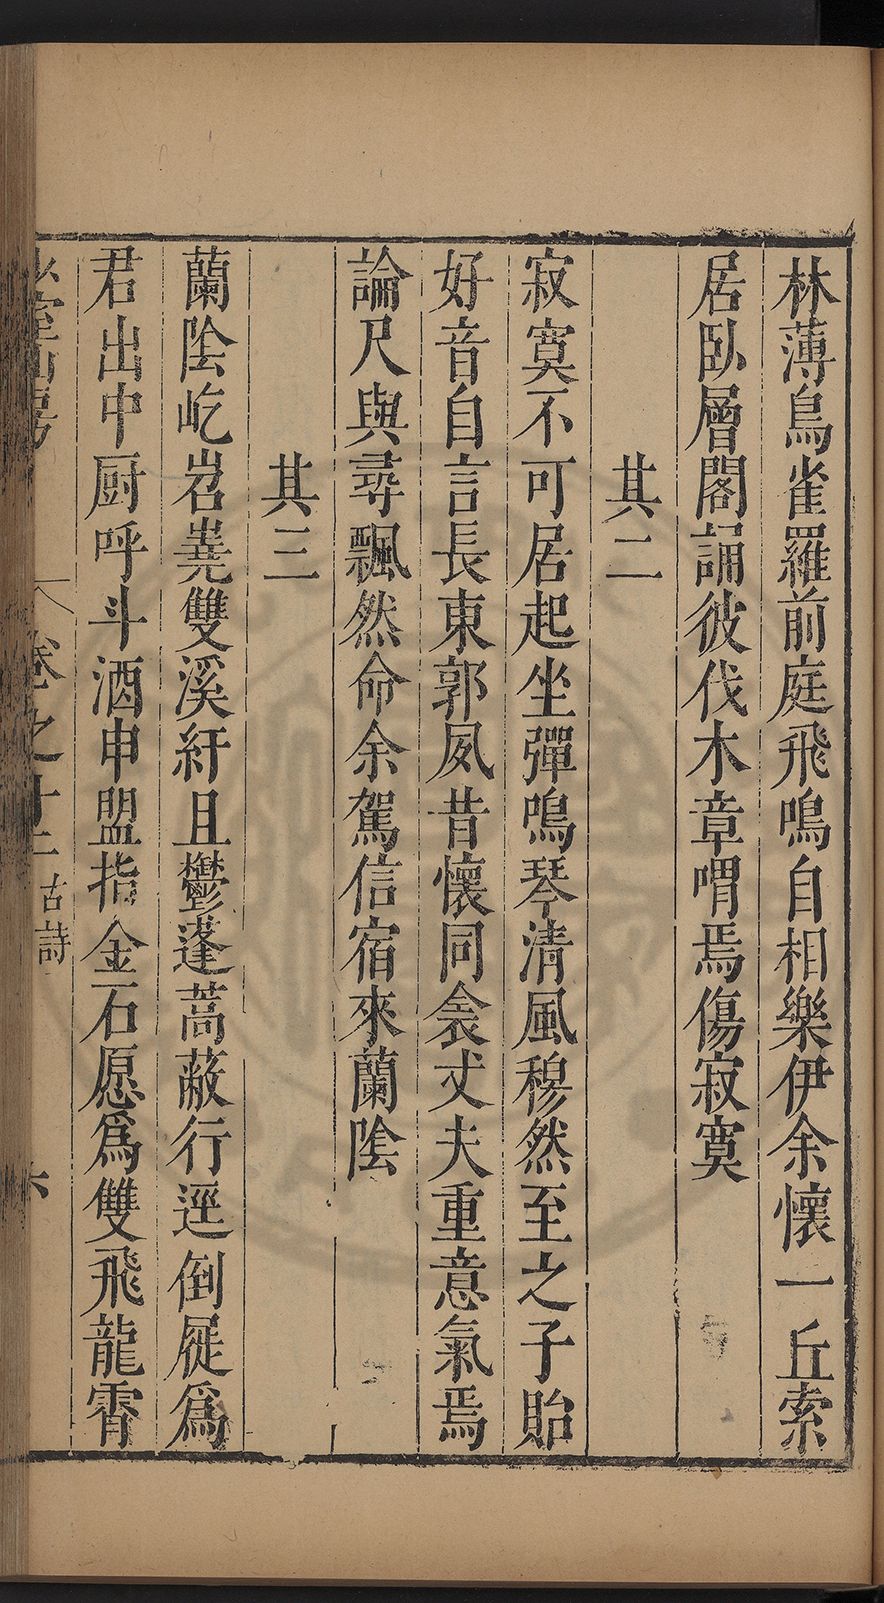 林薄鳥雀羅前庭飛鳴自相樂伊余懷一丘索
居臥層閣誦彼伐木章喟焉傷寂寞
其二
寂寞不可居起坐彈鳴琴清風穆然至之子貽
好音自言長東郭夙昔懷同衾丈夫重意氣焉
論尺與尋飄然命余駕信宿來蘭陰
其三
蘭陰屹岧嶤雙溪紆且鬱蓬蒿蔽行逕倒屣爲
君出中厨呼斗酒申盟指金石愿爲雙飛龍霄
卷之十二 古詩 六